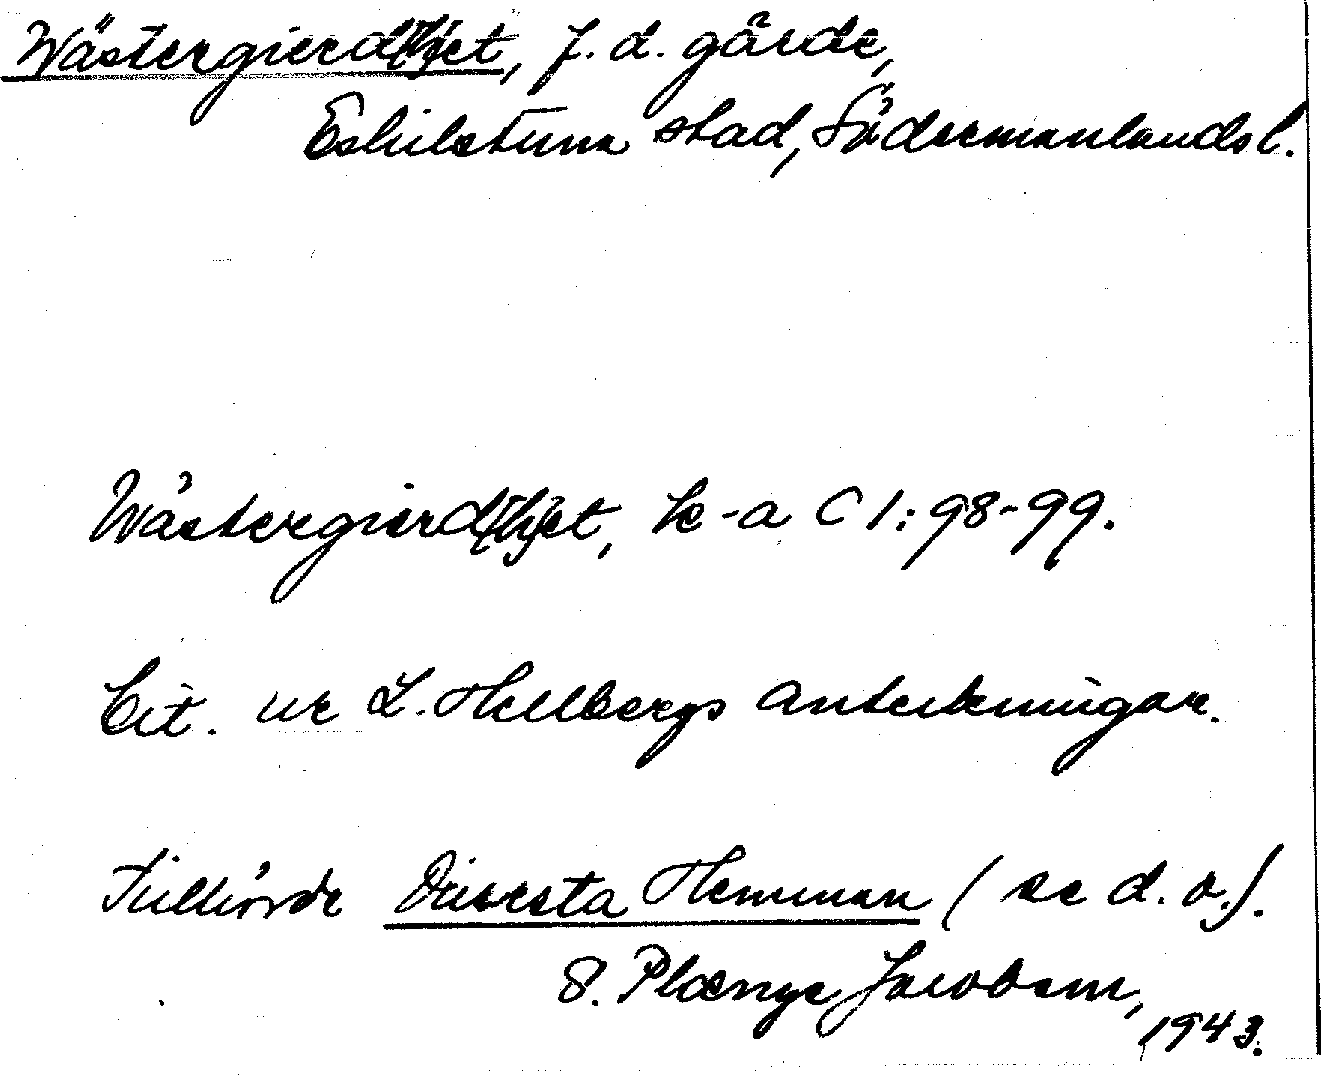 Wästergierd(th)et, f. d. gärde,
Eskilstuna stad, Södermanlands l.
Wästergierd(th)et, k-a C 1: 98-99.
Cit. ur L. Hellbergs anteckningar.
Tillhörde Disesta Hemman (se d. o.).
S. Plænge Jacobson,
1943.